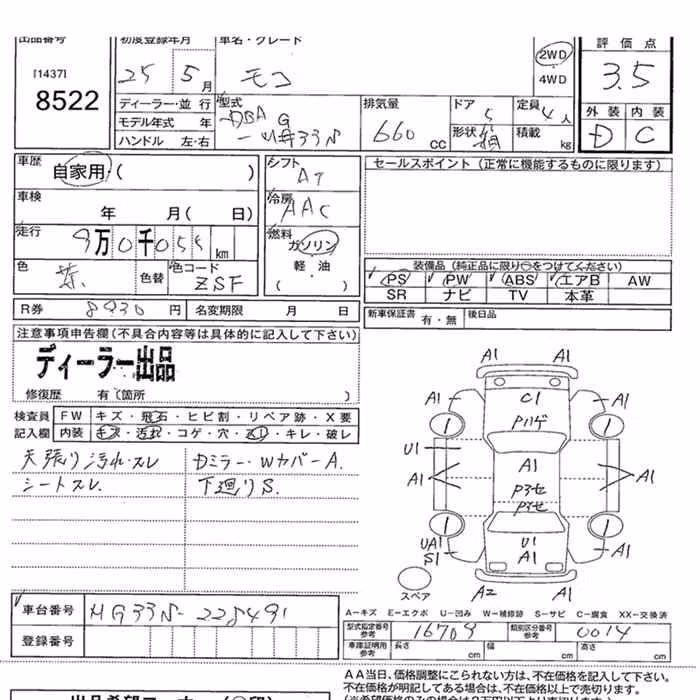 出品番号 初度登録年月 車名・グレード 評価点
[1437] 25 5月 モコ 2WD 3.5
8522 4WD
ディーラー・並行 型式 排気量 ドア 定員 外装 内装
モデル年式 年 DBA 660 CC 5 4人 D C
ハンドル 左・右 形状 箱 積載 kg
車歴 自家用・( ) シフト AT セールスポイント (正常に機能するものに限ります)
車検 年 月( 日) 冷房 AAC
走行 9万0千055km 燃料 ガソリン
軽油
( )
色 茶 色替 色コード ZSF
装備品 (純正品に限り○をつけてください)
PS PW ABS エアB AW
SR ナビ TV 本革
R券 8930円 名変期限 月 日 新車保証書 有・無 後日品
注意事項申告欄 (不具合内容等は具体的に記入して下さい)
ディーラー出品
修復歴 有 (箇所 )
検査員 FW キズ・飛石・ヒビ割・リペア跡・X要
記入欄 内装 キズ・汚れ・コゲ・穴・キレ・破レ
天張り汚れ・スレ Dミラー・WカバーA.
シートスレ. 下廻りS.
A1 A1
A1 C1 A1
Pハゲ
1 1
U1
A1 A1 A1
Pヨセ
Pヨセ
1 1
UA1 U1
S1 A1 A1
A2 A1
スペア
車台番号 HG33S-228491
登録番号
A-キズ E-エクボ U-凹み W-補修跡 S-サビ C-腐食 XX-交換済
型式指定番号 参考 16709 類別区分番号 参考 0014
車庫証明用 参考 長さ cm 幅 cm 高さ cm
AA当日、価格調整にこられない方は、不在価格を記入して下さい。
不在価格が明記してある場合は、不在価格以上で売切ります。